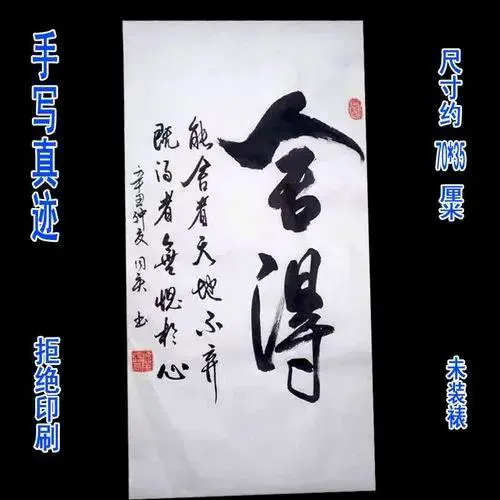 手写真迹
拒绝印刷
尺寸约 70*35 厘米
未装裱
舍得
能舍者天地不弃
既得者無愧於心
辛丑仲夏 书